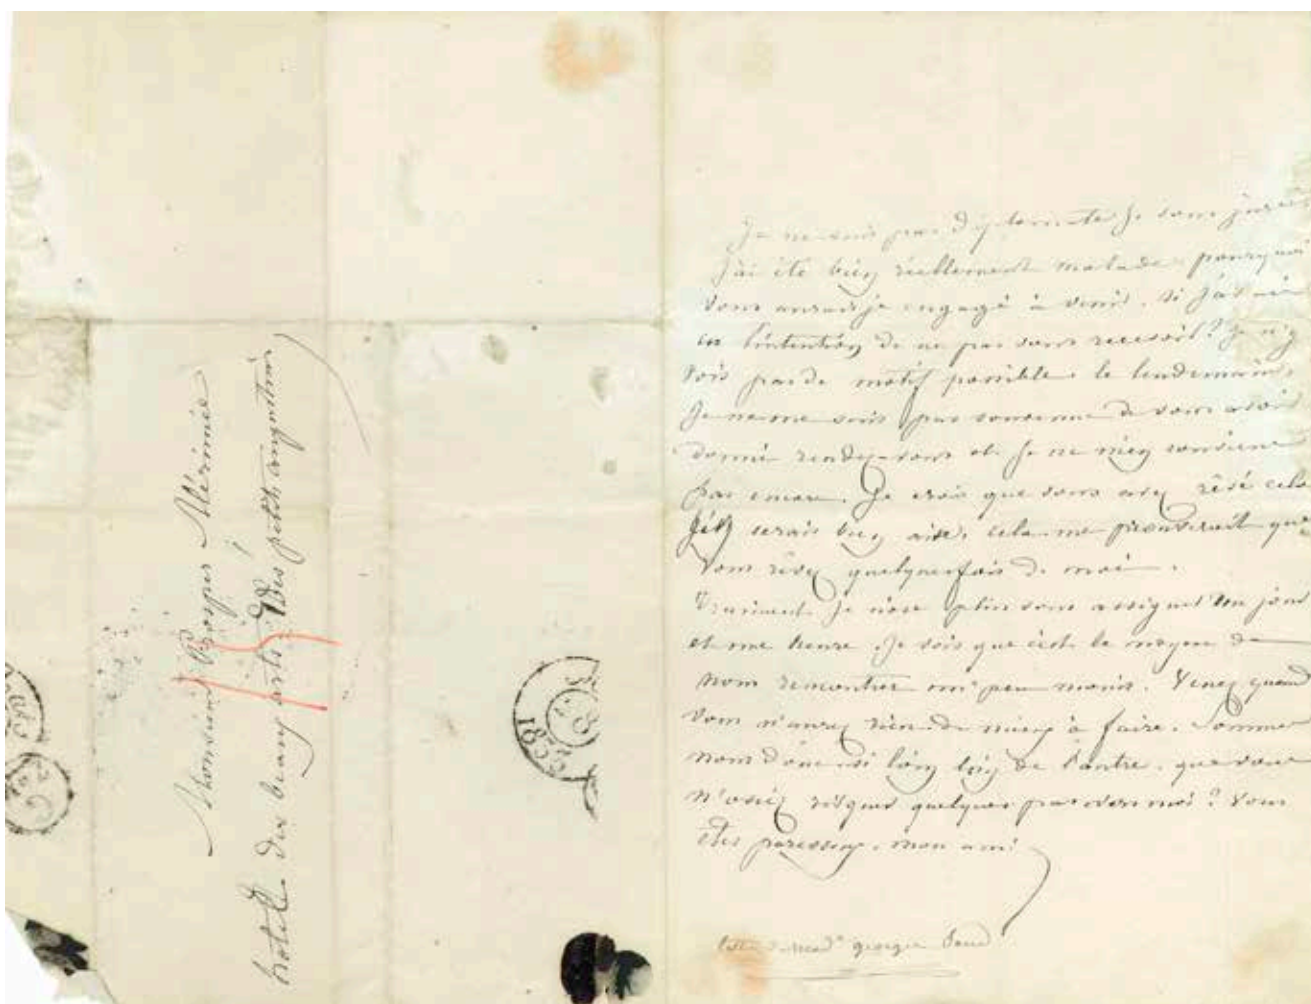 Monsieur Prosper Mérimée
hotel des beaux arts, des petits augustins
1833
Je ne suis pas diplomate je vous jure
J'ai été bien réellement malade. pourquoi
vous aurais-je engagé à venir, si j'avais
eu l'intention de ne pas vous recevoir? Je n'y
vois pas de motif possible. le lendemain,
Je ne me suis pas souvenue de vous avoir
donné rendez-vous et je ne m'en souviens
pas encore. Je crois que vous avez rêvé cela
J'en serais bien aise, cela me prouverait que
vous rêvez quelquefois de moi.
Vraiment je n'ose plus vous assigner un jour
et une heure. Je vois que c'est le moyen de
nous rencontrer un peu moins. Venez quand
vous n'aurez rien de mieux à faire. Sommes
nous donc si loin l'un de l'autre, que vous
n'osiez risquer quelques pas vers moi? Vous
êtes paresseux, mon ami
lettre de mad^e georges Sand